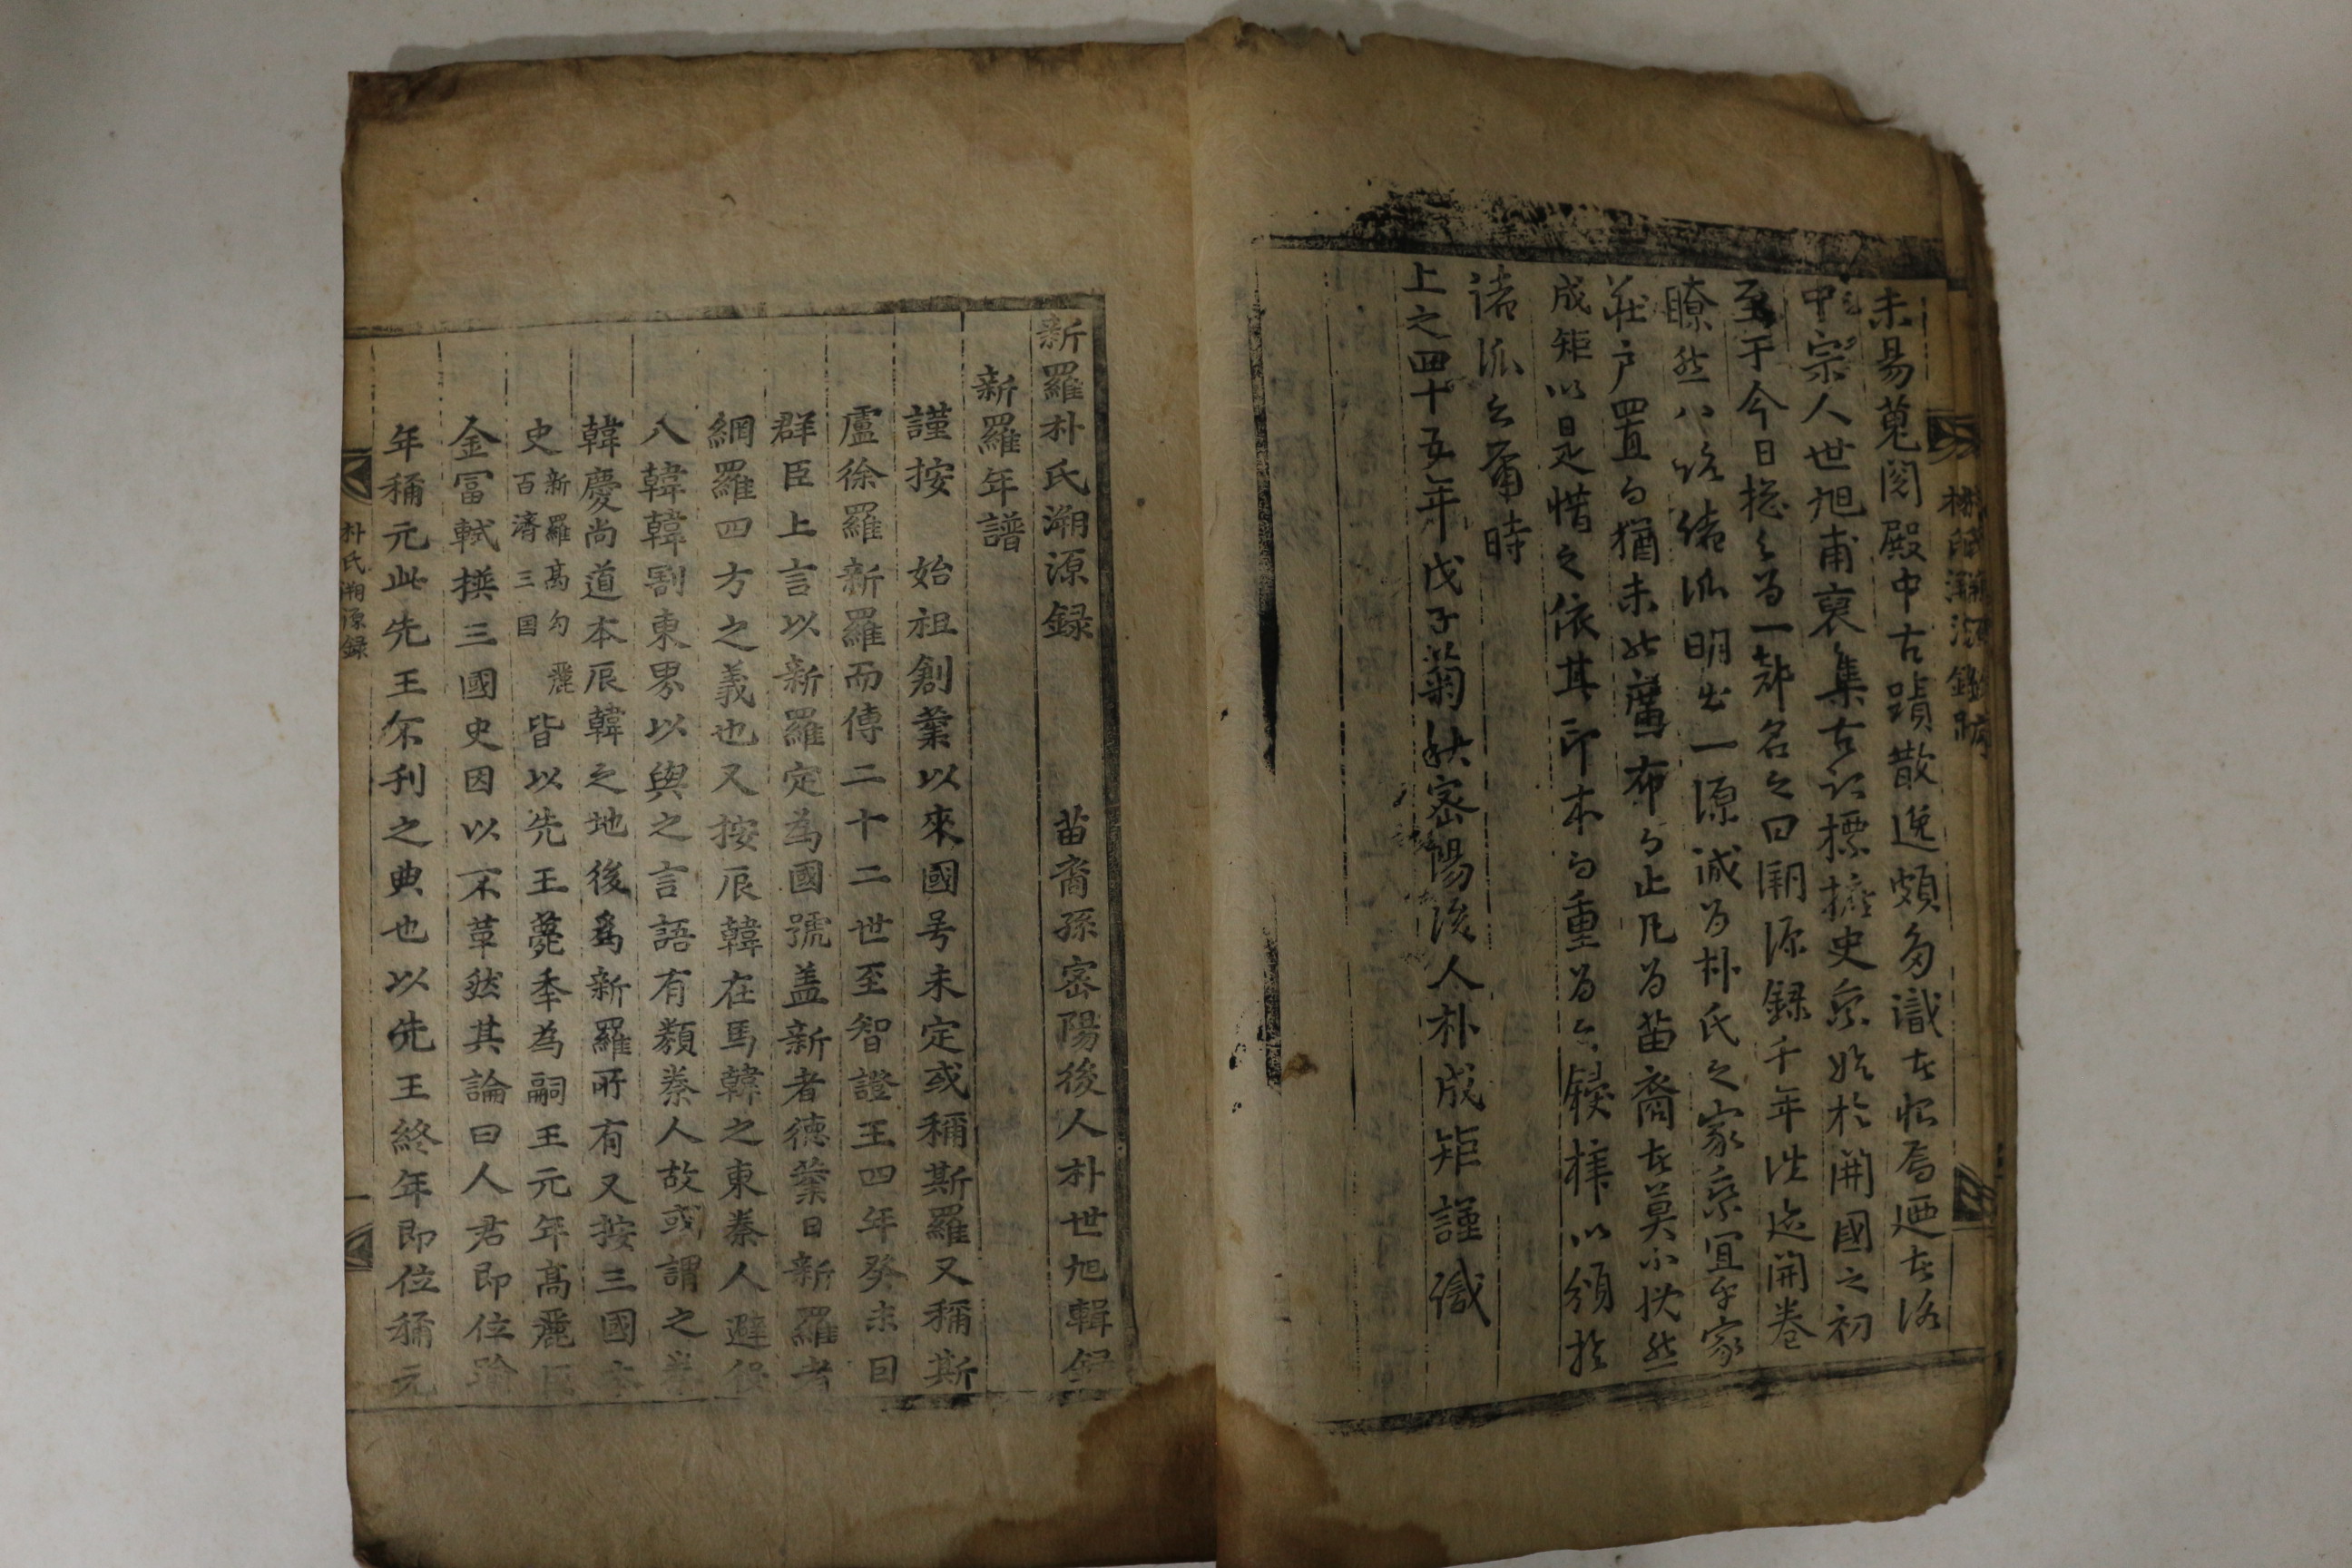 未易蒐閱殿中古蹟散逸頗多識者恨焉廼者洛
中宗人世旭甫裒集古記標摭史糸始於開國之初
至于今日捴之為一部名之曰溯源錄千年往迹開卷
瞭然八路緒派明出一源誠为朴氏之家乘宜乎家
莊户置而猶未能廣布而止凡为苗裔者莫不怃然
成矩以是惜之依其印本而重为之鋟梓以頒於
諸派云爾時
上之四十五年戊子菊秋密陽後人朴成矩謹識
新羅朴氏溯源録 苗裔孫密陽後人朴世旭輯録
新羅年譜
謹按 始祖創業以來國号未定或稱斯羅又稱斯
盧徐羅新羅而傳二十二世至智證王四年癸未囙
群臣上言以新羅定為國號盖新者德業日新羅者
網羅四方之義也又按辰韓在馬韓之東秦人避役
入韓韓割東界以與之言語有類秦人故或謂之秦
韓慶尚道本辰韓之地後為新羅所有又按三國本
史新羅高勾麗百濟三国皆以先王薨年為嗣王元年高麗臣
金冨軾撰三國史因以不革然其論曰人君即位踰
年稱元此先王不刊之典也以先王終年即位稱元
朴氏溯源録 一